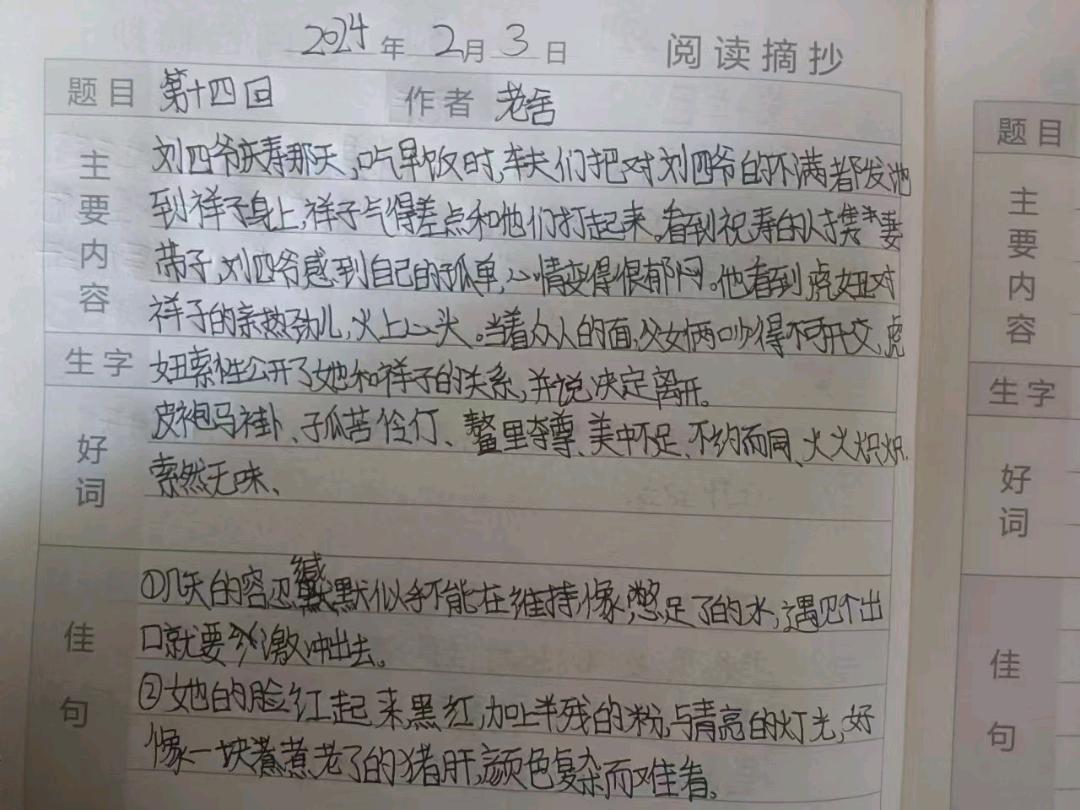 2024 年 2 月 3 日 阅读摘抄
题目 第十四回 作者 老舍
主要内容
刘四爷庆寿那天,吃早饭时,车夫们把对刘四爷的不满都发泄
到祥子身上,祥子气得差点和他们打起来。看到祝寿的人携妻
带子,刘四爷感到自己的孤单,心情变得很郁闷。他看到虎妞对
祥子的亲热劲儿,火上心头。当着众人的面,父女俩吵得不可开交,虎
生字
妞索性公开了她和祥子的关系,并说决定离开。
好词
皮袍马褂、孤苦伶仃、鳌里夺尊、美中不足、不约而同、火火炽炽
索然无味、
佳句
①几天的容忍缄默似乎不能在维持,像憋足了的水,遇见个出
口就要激冲出去。
②她的脸红起来,黑红,加上半残的粉,与青亮的灯光,好
像一块煮老了的猪肝,颜色复杂而难看。
题目
主要内容
生字
好词
佳句